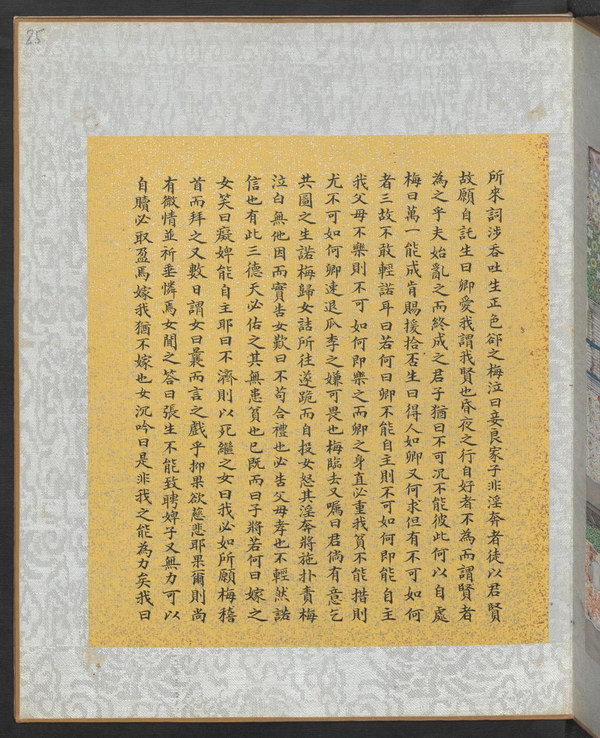 25
所來詞涉吞吐生正色卻之梅泣曰妾良家子非淫奔者徒以君賢
故願自託生曰卿愛我謂我賢也昏夜之行自好者不為而謂賢者
為之乎夫始亂之而終成之君子猶曰不可況不能彼此何以自處
梅曰萬一能成肯賜援拾否生曰得人如卿又何求但有不可如何
者三故不敢輕諾耳曰若何曰卿不能自主則不可如何即能自主
我父母不樂則不可如何即樂之而卿之身直必重我貧不能措則
尤不可如何卿速退瓜李之嫌可畏也梅臨去又囑曰君倘有意乞
共圖之生諾梅歸女詰所往遂跪而自投女怒其淫奔將施扑責梅
泣白無他因而實告女歎曰不苟合禮也必告父母孝也不輕然諾
信也有此三德天必佑之其無患貧也已既而曰子將若何曰嫁之
女笑曰癡婢能自主耶曰不濟則以死繼之女曰我必如所願梅稽
首而拜之又數日謂女曰曩而言之戲乎抑果欲慈悲耶果爾則尚
有微情並祈垂憐焉女間之答曰張生不能致聘婢子又無力可以
自贖必取盈焉嫁我猶不嫁也女沉吟曰是非我之能為力矣我曰